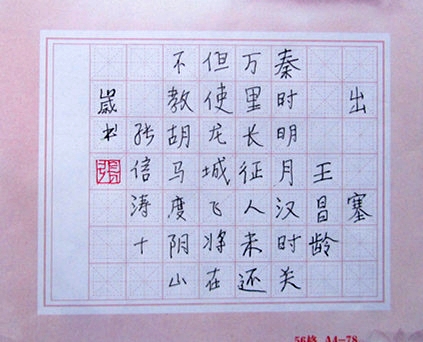 出塞
王昌龄
秦时明月汉时关
万里长征人未还
但使龙城飞将在
不教胡马度阴山
张信涛十
岁书
張
56格 A4-78